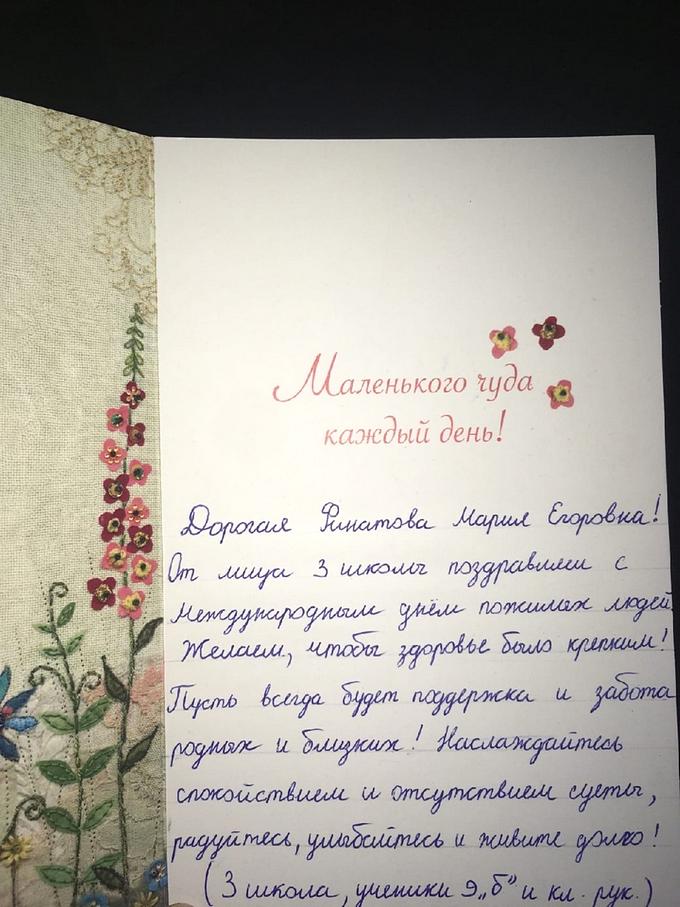 Маленького чуда
каждый день!
Дорогая Финатова Мария Егоровна!
От лица 3 школы поздравляем с
Международным днём пожилых людей
Желаем, чтобы здоровье было крепким!
Пусть всегда будет поддержка и забота
родных и близких! Наслаждайтесь
спокойствием и отсутствием суеты,
радуйтесь, улыбайтесь и живите долго!
(3 школа, ученики 9„б” и кл. рук.)